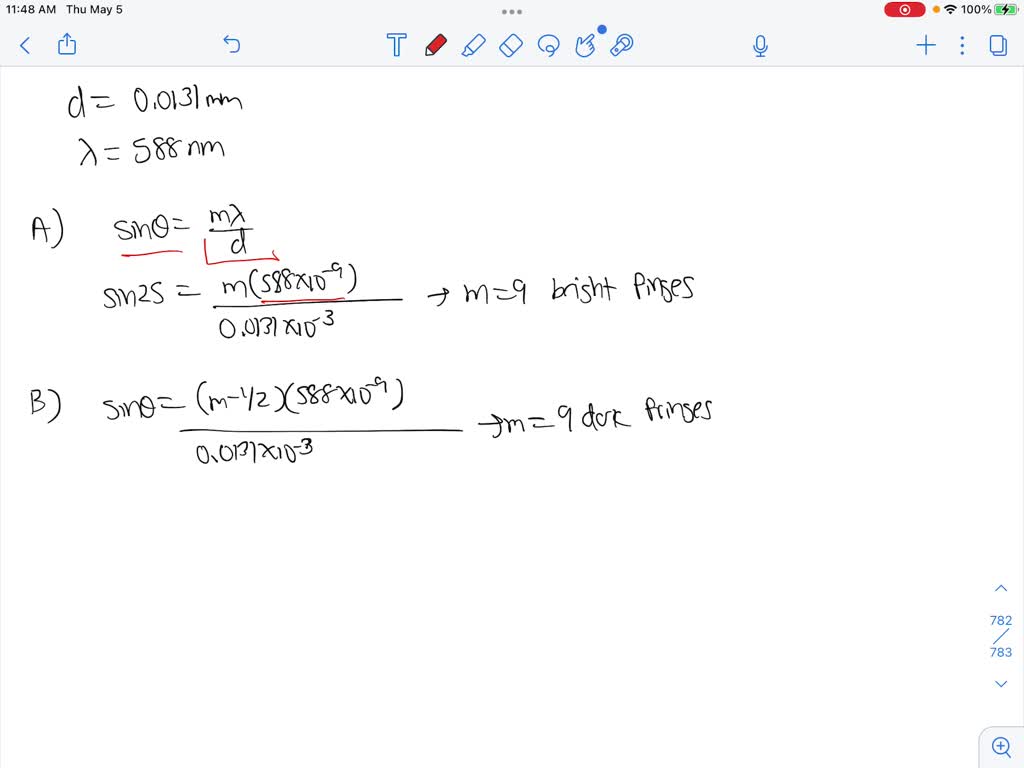 11:48 AM Thu May 5
100%
T
d = 0.0131 mm
λ = 588 nm
A) sinθ = mλ/d
sin25 = m(588×10⁻⁹)/0.0131×10⁻³ → m=9 bright fringes
B) sinθ = (m-1/2)(588×10⁻⁹)/0.0131×10⁻³ → m=9 dark fringes
782
783